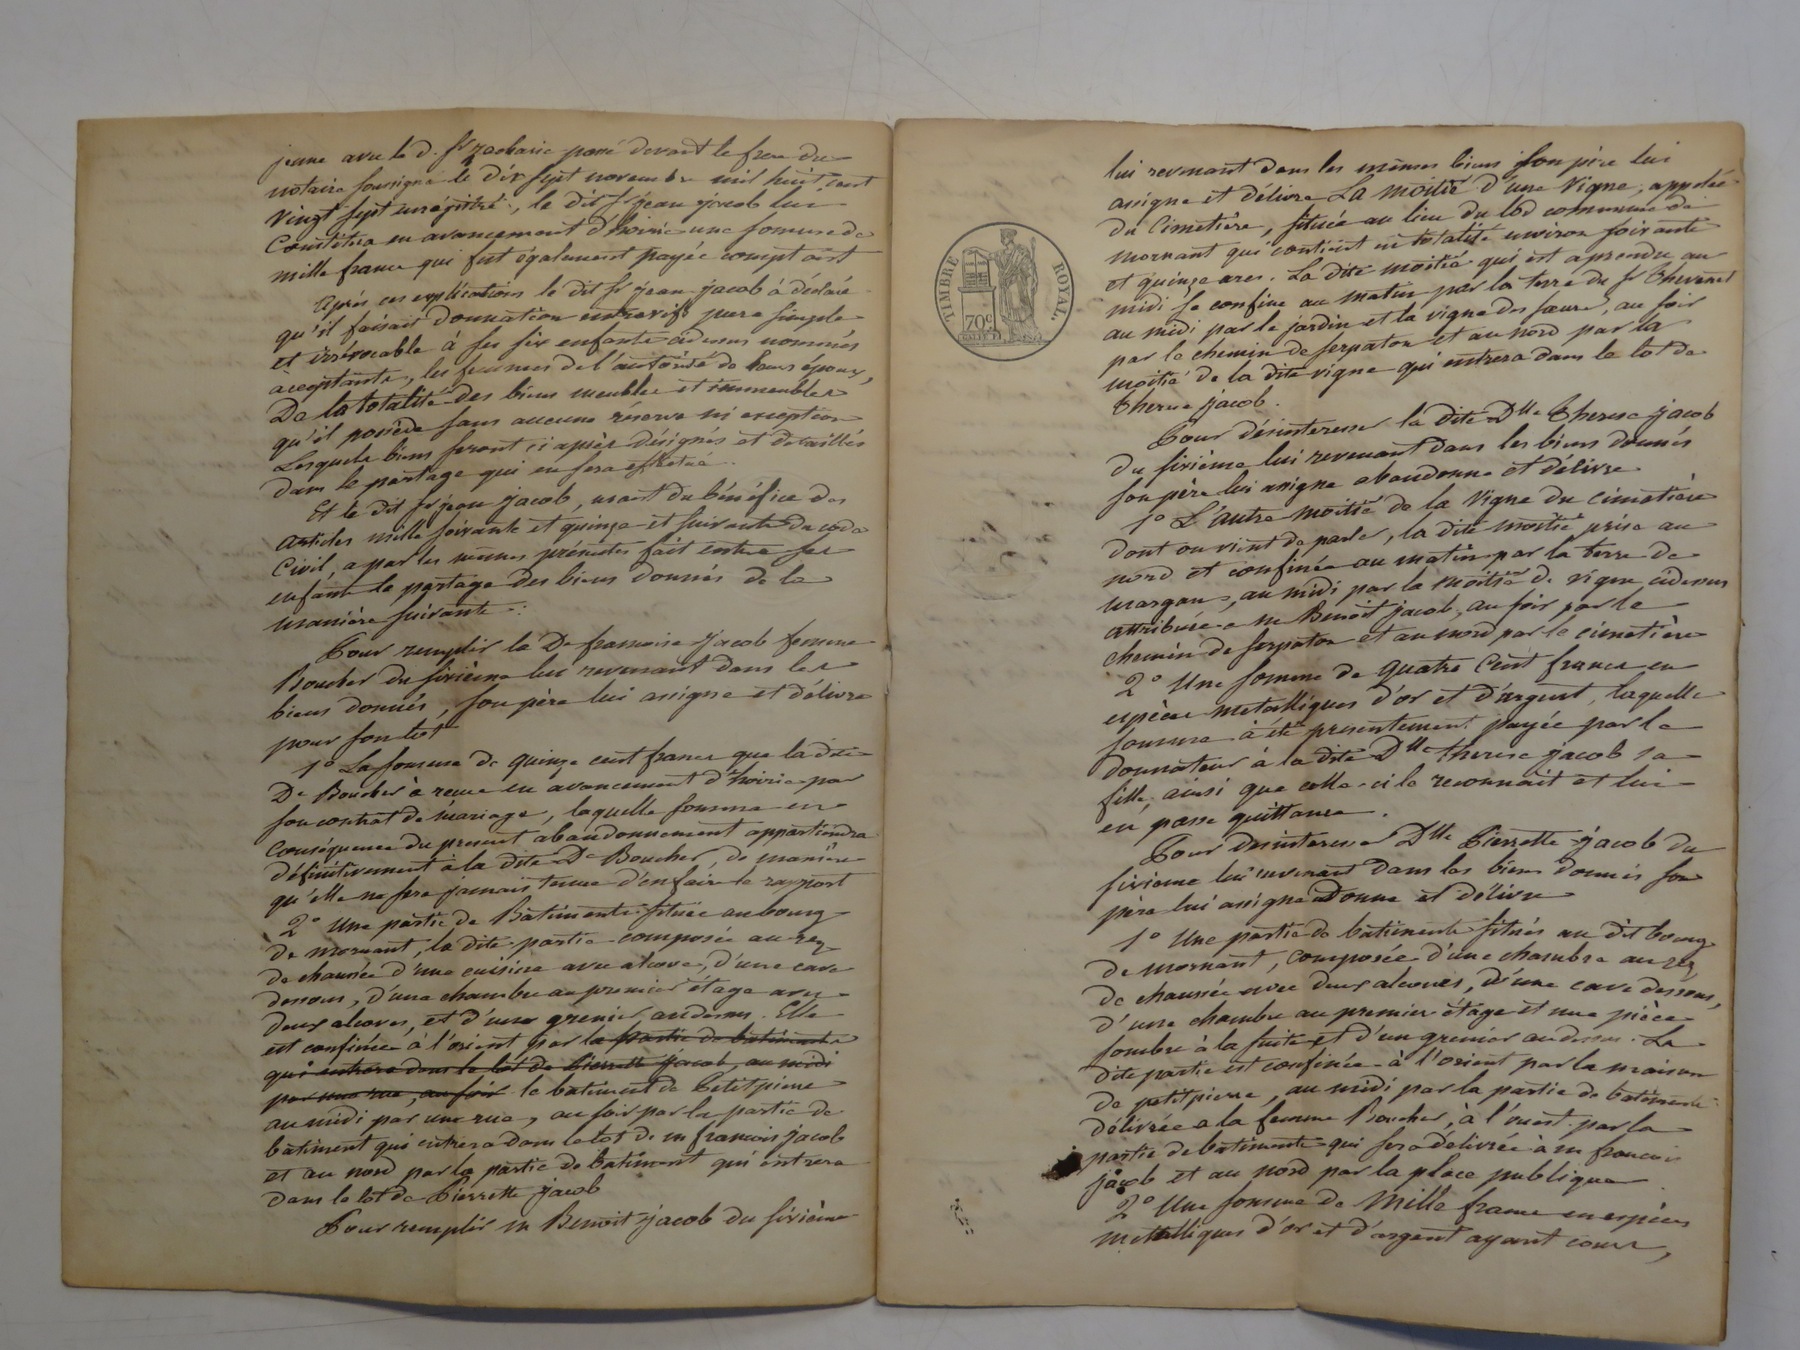 jeune avec le d. sr zacharie passé devant le frere du
notaire soussigné le dix sept novembre mil huit cent
vingt sept enregistré, le dit sr jean jacob lui
Constitua en avancement d'hoirie une somme de
mille francs qui fut également payée comptant
Après ces explications le dit sr jean jacob à déclaré
qu'il faisait donnation entrevifs pure simple
et irrévocable à ses six enfants cidessus nommés
acceptants, les femmes de l'autorité de leurs époux,
De la totalité des biens meubles et immeubles
qu'il possède sans aucune réserve ni exception
Lesquels biens seront ci après désignés et détaillés
dans le partage qui en sera effectué.
Et le dit sr jean jacob, usant du bénéfice des
articles mille soixante et quinze et suivants du code
Civil, a par les mêmes présentes fait entre ses
enfants le partage des biens donnés de la
manière suivante :
Pour remplir la De francoise Jacob femme
Boucher du sixième lui revenant dans les
biens donnés, son père lui assigne et délivre
pour son lot
1o La somme de quinze cent francs que la dite
De Boucher à recue en avancement d'hoirie par
son contrat de mariage, laquelle somme en
conséquence du present abandonnement appartiendra
définitivement à la dite De Boucher, de manière
qu'elle ne sera jamais tenue d'en faire le rapport
2o Une partie de Bâtiments située au bourg
de mornant, la dite partie composée au rez
de chaussée d'une cuisine avec alcove, d'une cave
dessous, d'une chambre au premier étage avec
deux alcoves, et d'un grenier audessus. Elle
est confinée à l'orient par la partie de batiments
qui entrera dans le lot de Pierrette Jacob, au midi
par une rue, au soir le batiment de Petitpierre
au midi par une rue, au soir par la partie de
batiment qui entrera dans le lot de m francois jacob
et au nord par la partie de batiment qui entrera
dans le lot de Pierrette Jacob
Pour remplir m Benoit Jacob du sixième
TIMBRE ROYAL.
70c
lui revenant dans les mêmes biens son père lui
assigne et délivre La moitié d'une vigne, appelée
du Cimetière, située au lieu du lod commune de
mornant qui contient en totalité environ soixante
et quinze ares. La dite moitié qui est aprendre au
midi se confine au matin par la terre du sr Thevenet
au midi par le jardin et la vigne des faure, au soir
par le chemin de serpaton et au nord par la
moitié de la dite vigne qui entrera dans le lot de
Therese Jacob.
Pour désinteresser la dite Dlle Therese Jacob
du sixième lui revenant dans les biens donnés
son père lui assigne abandonne et délivre
1o L'autre moitié de la vigne du cimetière
dont on vient de parler, la dite moitié prise au
nord et confinée au matin par la terre de
, au midi par la moitié de vigne cidessus
attribuée a m Benoit jacob, au soir par le
chemin de serpaton et au nord par le cimetière
2o Une somme de quatre Cent francs en
espèces metalliques d'or et d'argent, laquelle
somme à été presentement payée par le
donnateur à la dite Dlle therese Jacob sa
fille, ainsi que celle-ci le reconnait et lui
en passe quittance.
Pour desinteresser Dlle Pierrette Jacob du
sixieme lui revenant dans les biens donnés son
père lui assigne Donne et délivre
1o Une partie de batiments situés au dit bourg
de mornant, composée d'une chambre au rez
de chaussée avec deux alcoves, d'une cave dessous,
d'une chambre au premier étage et une pièce
sombre à la suite et d'un grenier au dessus. La
dite partie est confinée à l'orient par la maison
de petitpierre, au midi par la partie de batiments
délivrée a la femme Boucher, à l'ouest par la
partie de batiments qui sera delivrée à m francois
jacob et au nord par la place publique.
2o Une somme de Mille francs en espèces
metalliques d'or et d'argent ayant cours,